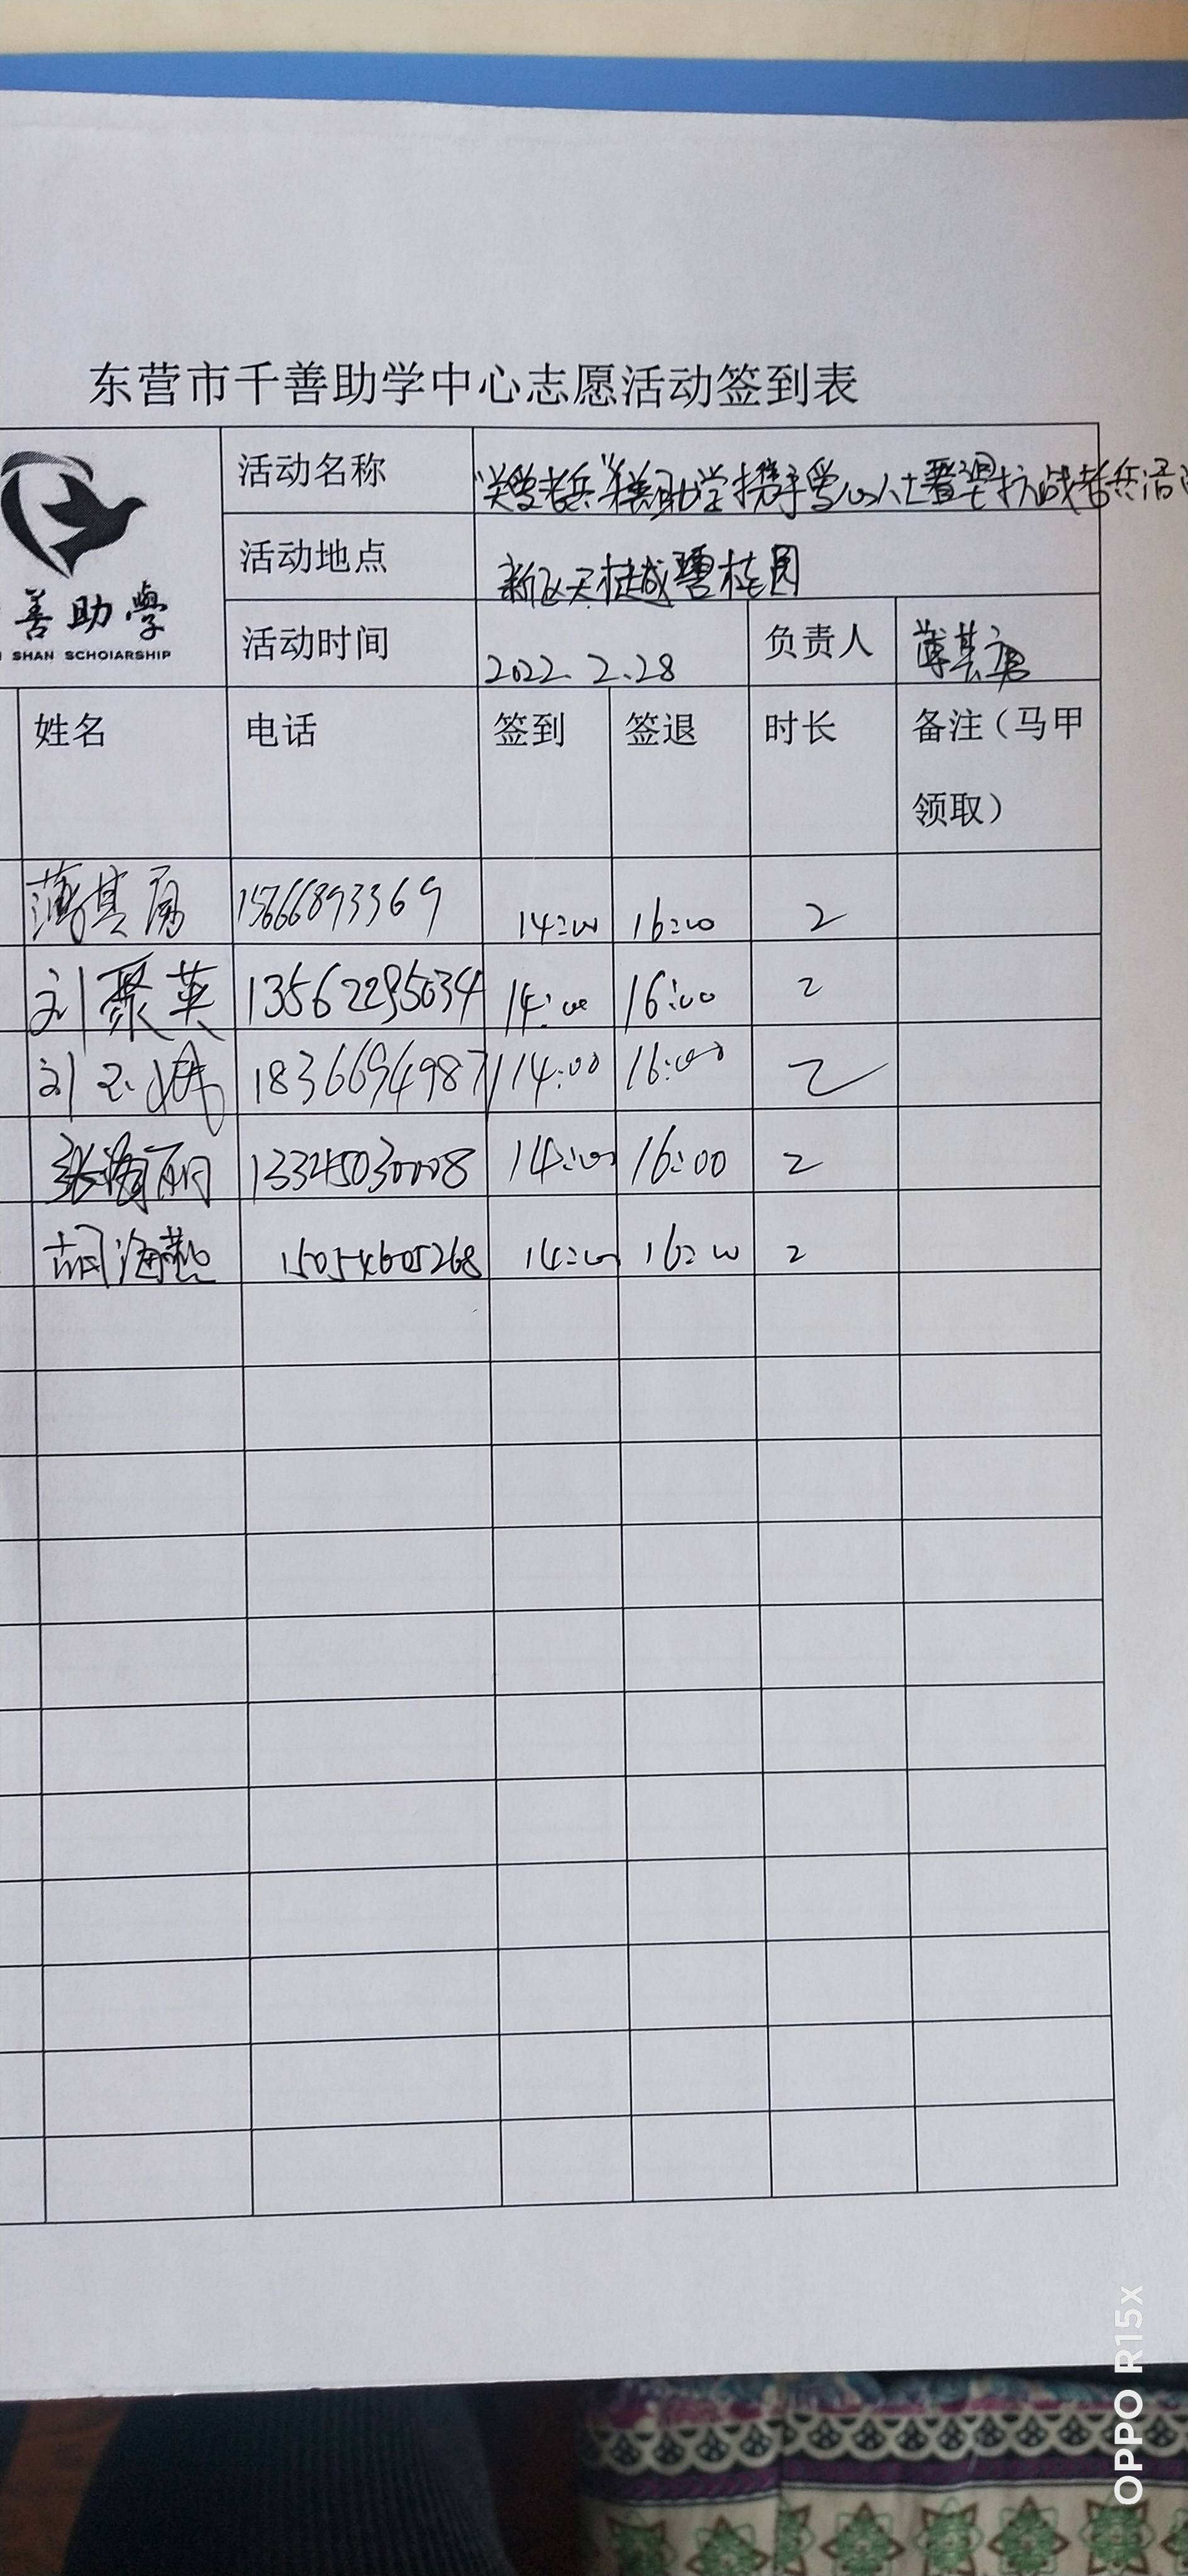 东营市千善助学中心志愿活动签到表
善助學
SHAN SCHOIARSHIP
活动名称 "关爱老兵"千善助学携手爱心人士看望抗战老兵活
活动地点 新区天桂城碧桂园
活动时间 2022.2.28 负责人 薄其房
姓名 电话 签到 签退 时长 备注（马甲
领取）
薄其房 15666893369 14:00 16:00 2
刘聚英 13562295034 14:00 16:00 2
刘玉 18366949871 14:00 16:00 2
张海丽 13345030008 14:00 16:00 2
胡海燕 15054605268 14:00 16:00 2
OPPO R15x